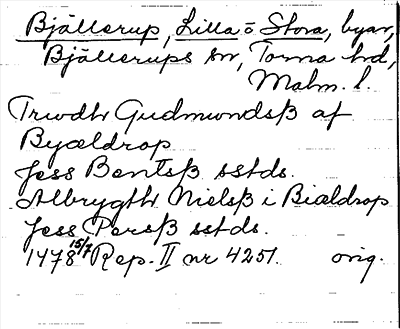 Bjällerup, Lilla o Stora, byar,
Bjällerups sn, Torna hd,
Malm. l.
Trwdh Gudmundsß af
Byældrop
Jess Bentsß sstds.
Albrygth Nielsß i Biældrop
Jess Persß sstds.
1478 15/7 Rep. II nr 4251. orig.